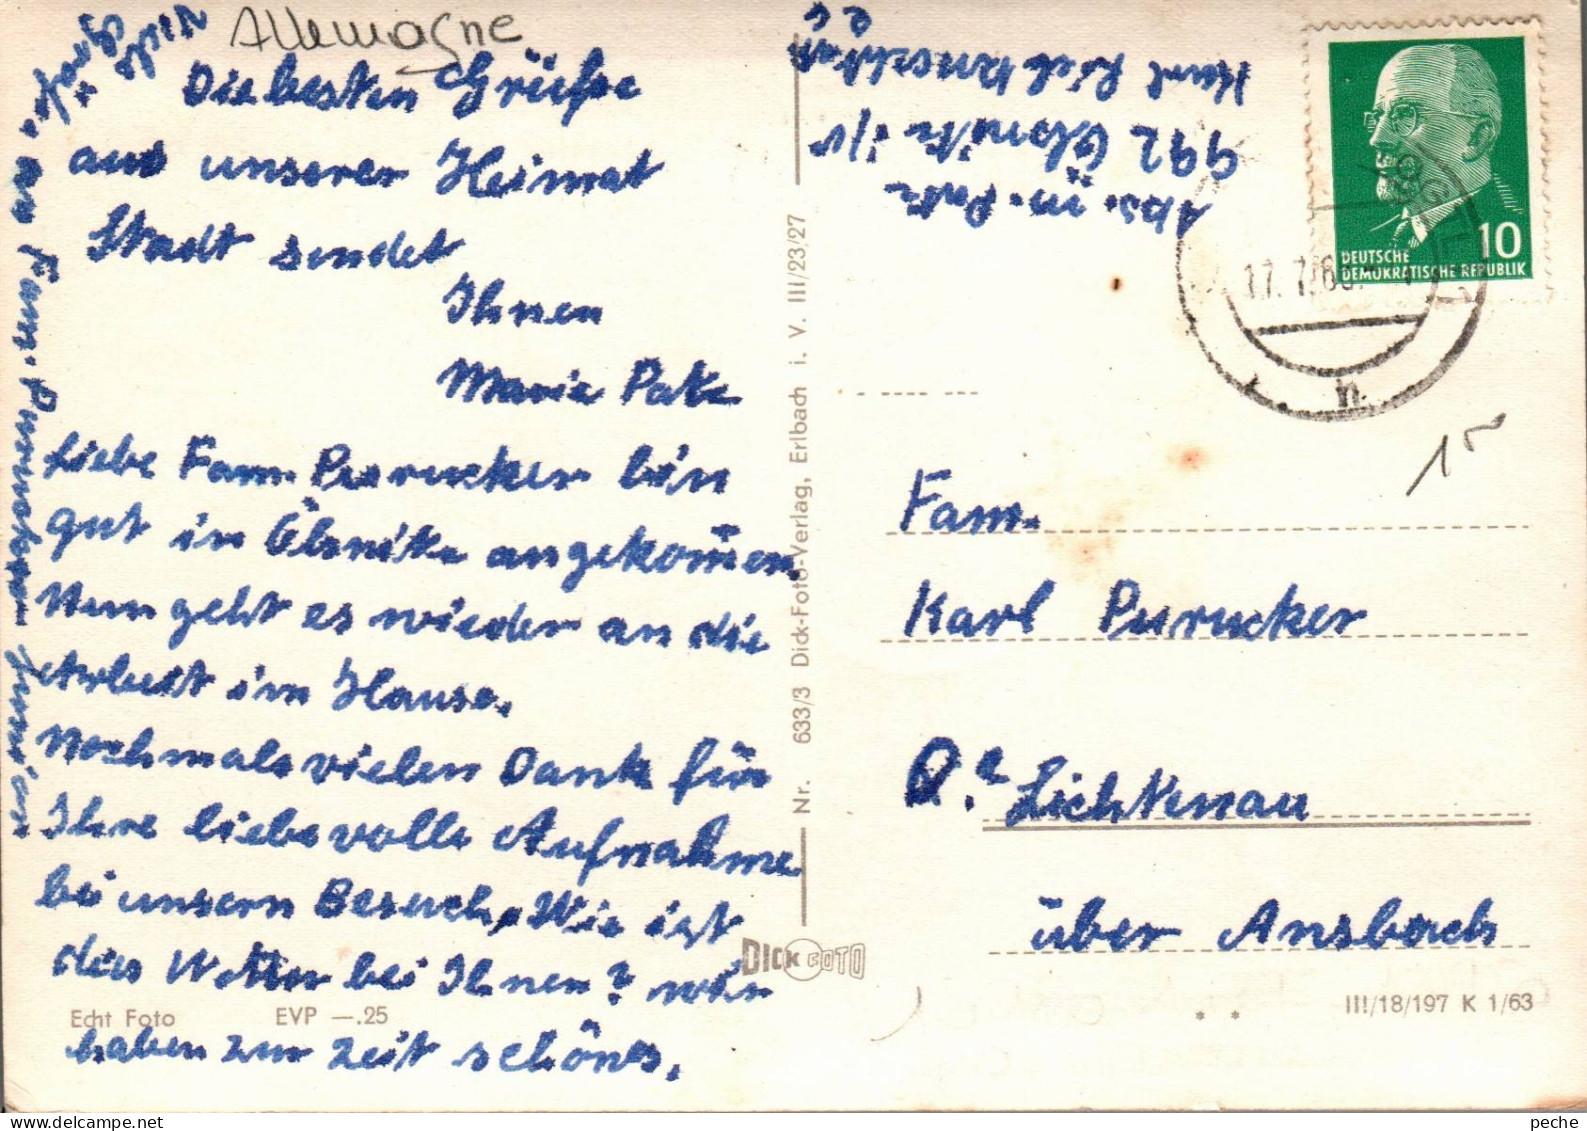 Allemagne
Die besten Grüße
aus unserer Heimat
Stadt sendet
Ihnen
Marie Patz
Liebe Fam. Purrucker bin
gut in Ölsnitz angekom̄en.
Nun geht es wieder an die
Arbeit im Hause.
Nochmals vielen Dank für
Ihre liebevolle Aufnahme
bei unsern Besuch, Wie ist
das Wetter bei Ihnen? wir
haben zur Zeit schönes.
Viele Grüße
an Fam. Purrucker
Echt Foto EVP —.25
Nr. 633/3 Dick-Foto-Verlag, Erlbach i. V. III/23/27
DICK FOTO
Abs. M. Patz
992 Ölsnitz i/V
Karl Liebknechtstr
DEUTSCHE
DEMOKRATISCHE REPUBLIK
10
17. 7. 6
h
Fam.
Karl Purrucker
Lichtenau
über Ansbach
III/18/197 K 1/63
peche